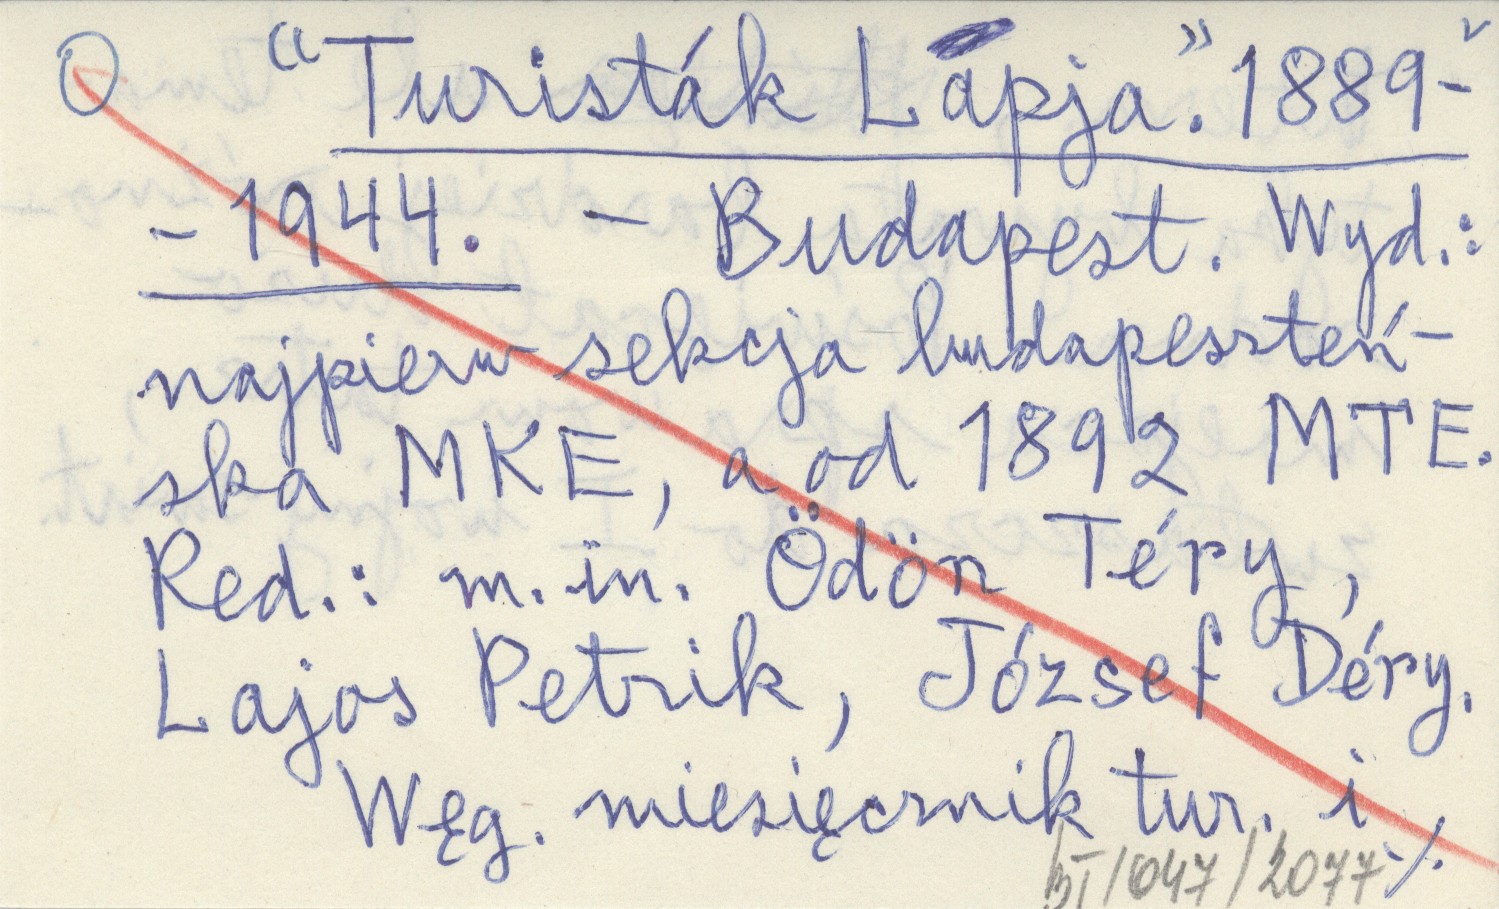 O "Turisták Lapja". 1889- v
- 1944. - Budapest. Wyd.:
najpierw sekcja budapeszteń-
ska MKE, a od 1892 MTE.
Red.: m.in. Ödön Téry,
Lajos Petrik, József Déry.
Węg. miesięcznik tur. i
·/.
/647/2077